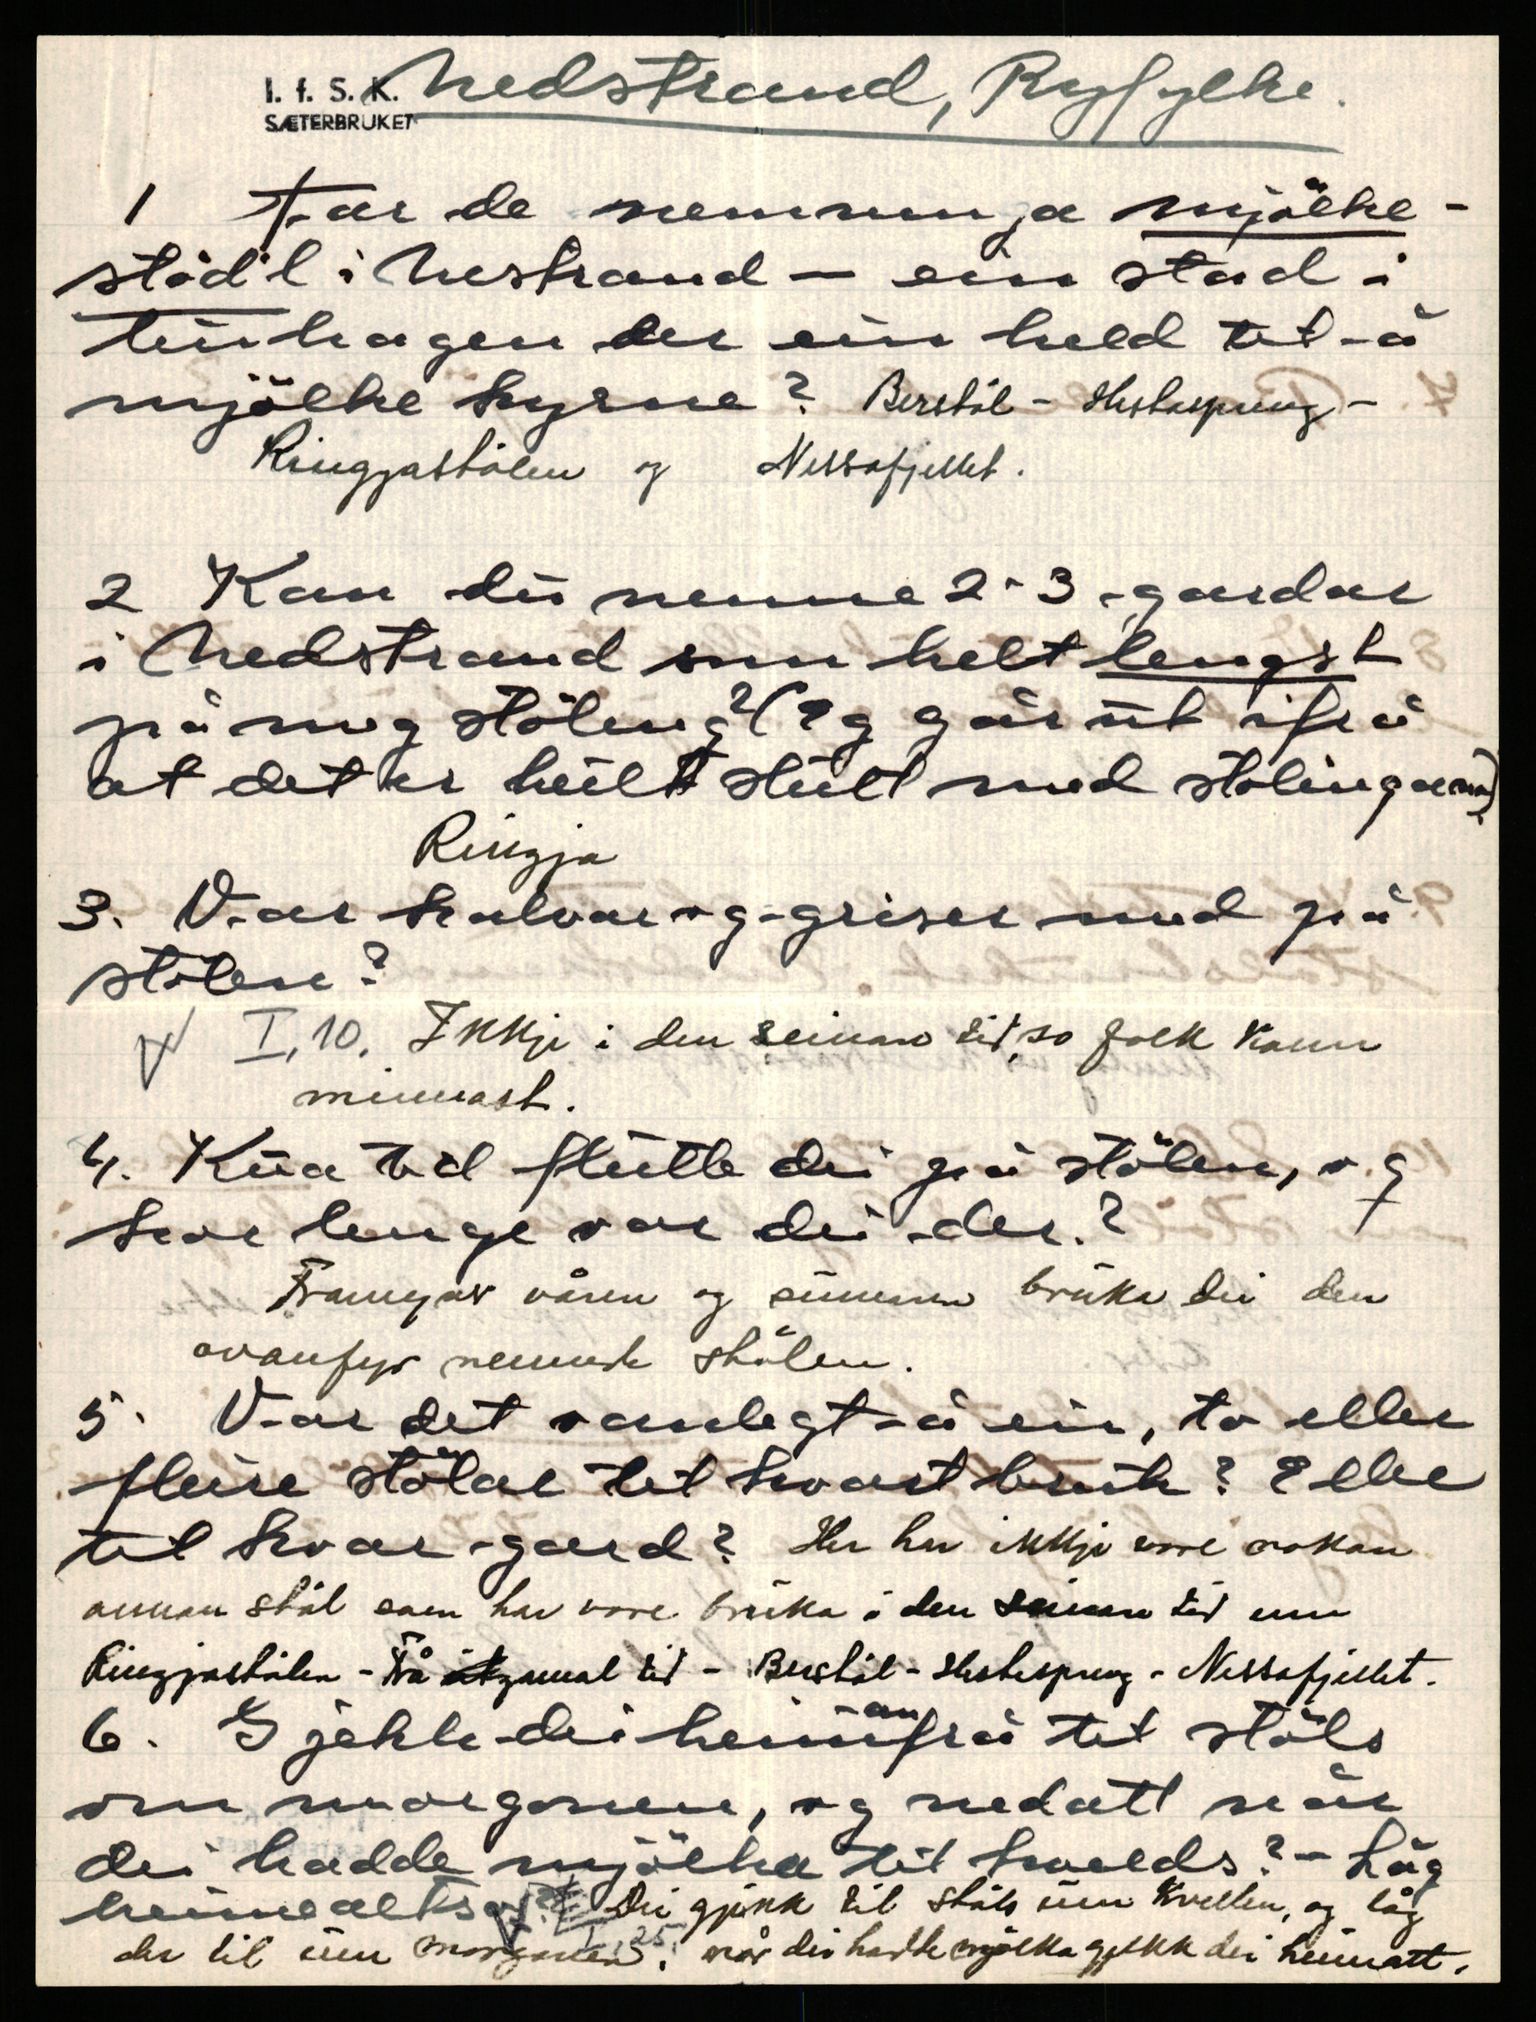 I. f. S. K. Nedstrand, Ryfylke.
SÆTERBRUKET
1 Har de nemnunga mjölke-
stöd'l i Nestrand - ein stad i
tunhagen der ein held til å
mjölke kyrne? Berstöl - Hestasprung -
Ringjastölen og Nessafjellet.
2 Kan du nemne 2-3 gardar
i Nedstrand som helt lengst
på meg stöling? (Eg går ut ifrå
at det er heilt slutt med stölinga nå)
Ringja
3. Var kalvar og griser med på
stölen?
I, 10. Ikkje i den seinare tid, so folk kann
minnast.
4. Kva tid flutte dei på stölen, og
kor lenge var dei der?
Framyver våren og sumaren bruka dei den
ovanfyr nemnde stölen.
5. Var det vanlegt å ein, to eller
fleire stölar til kvart bruk? Eller
til kvar gard? Her har ikkje vore nokon
annan stöl som har vore bruka i den seinare tid enn
Ringjastölen - Frå gamal tid - Berstöl - Hestesprung - Nessafjellet.
6. Gjekk dei heimanfrå til stöls
om morgonen, og nedatt når
dei hadde mjölka til kvelds? - Låg
heime altso? I, 25. Dei gjekk til stöls um kvelden, og låg
der til um morgonen. når dei hadde mjölka gjekk dei heimatt.